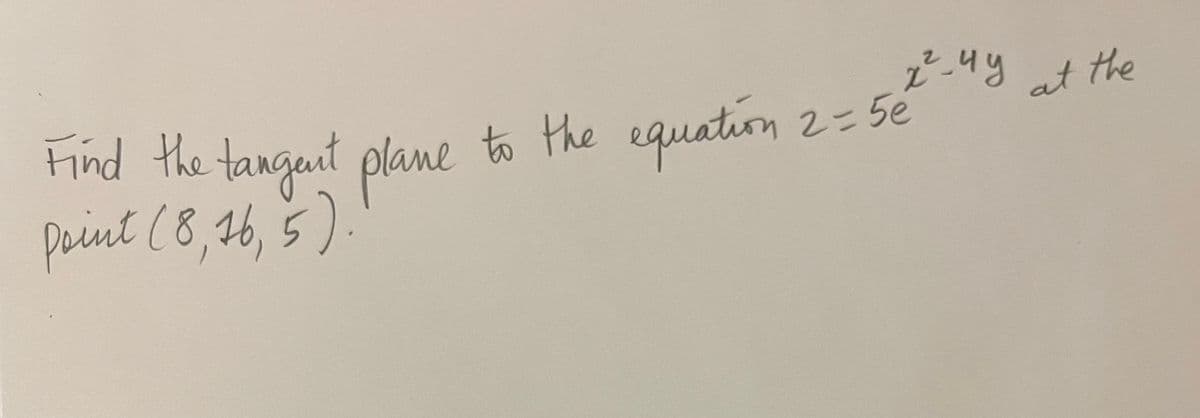 Find the tangent plane to the equation z = 5e^{x²-4y} at the
point (8, 16, 5).